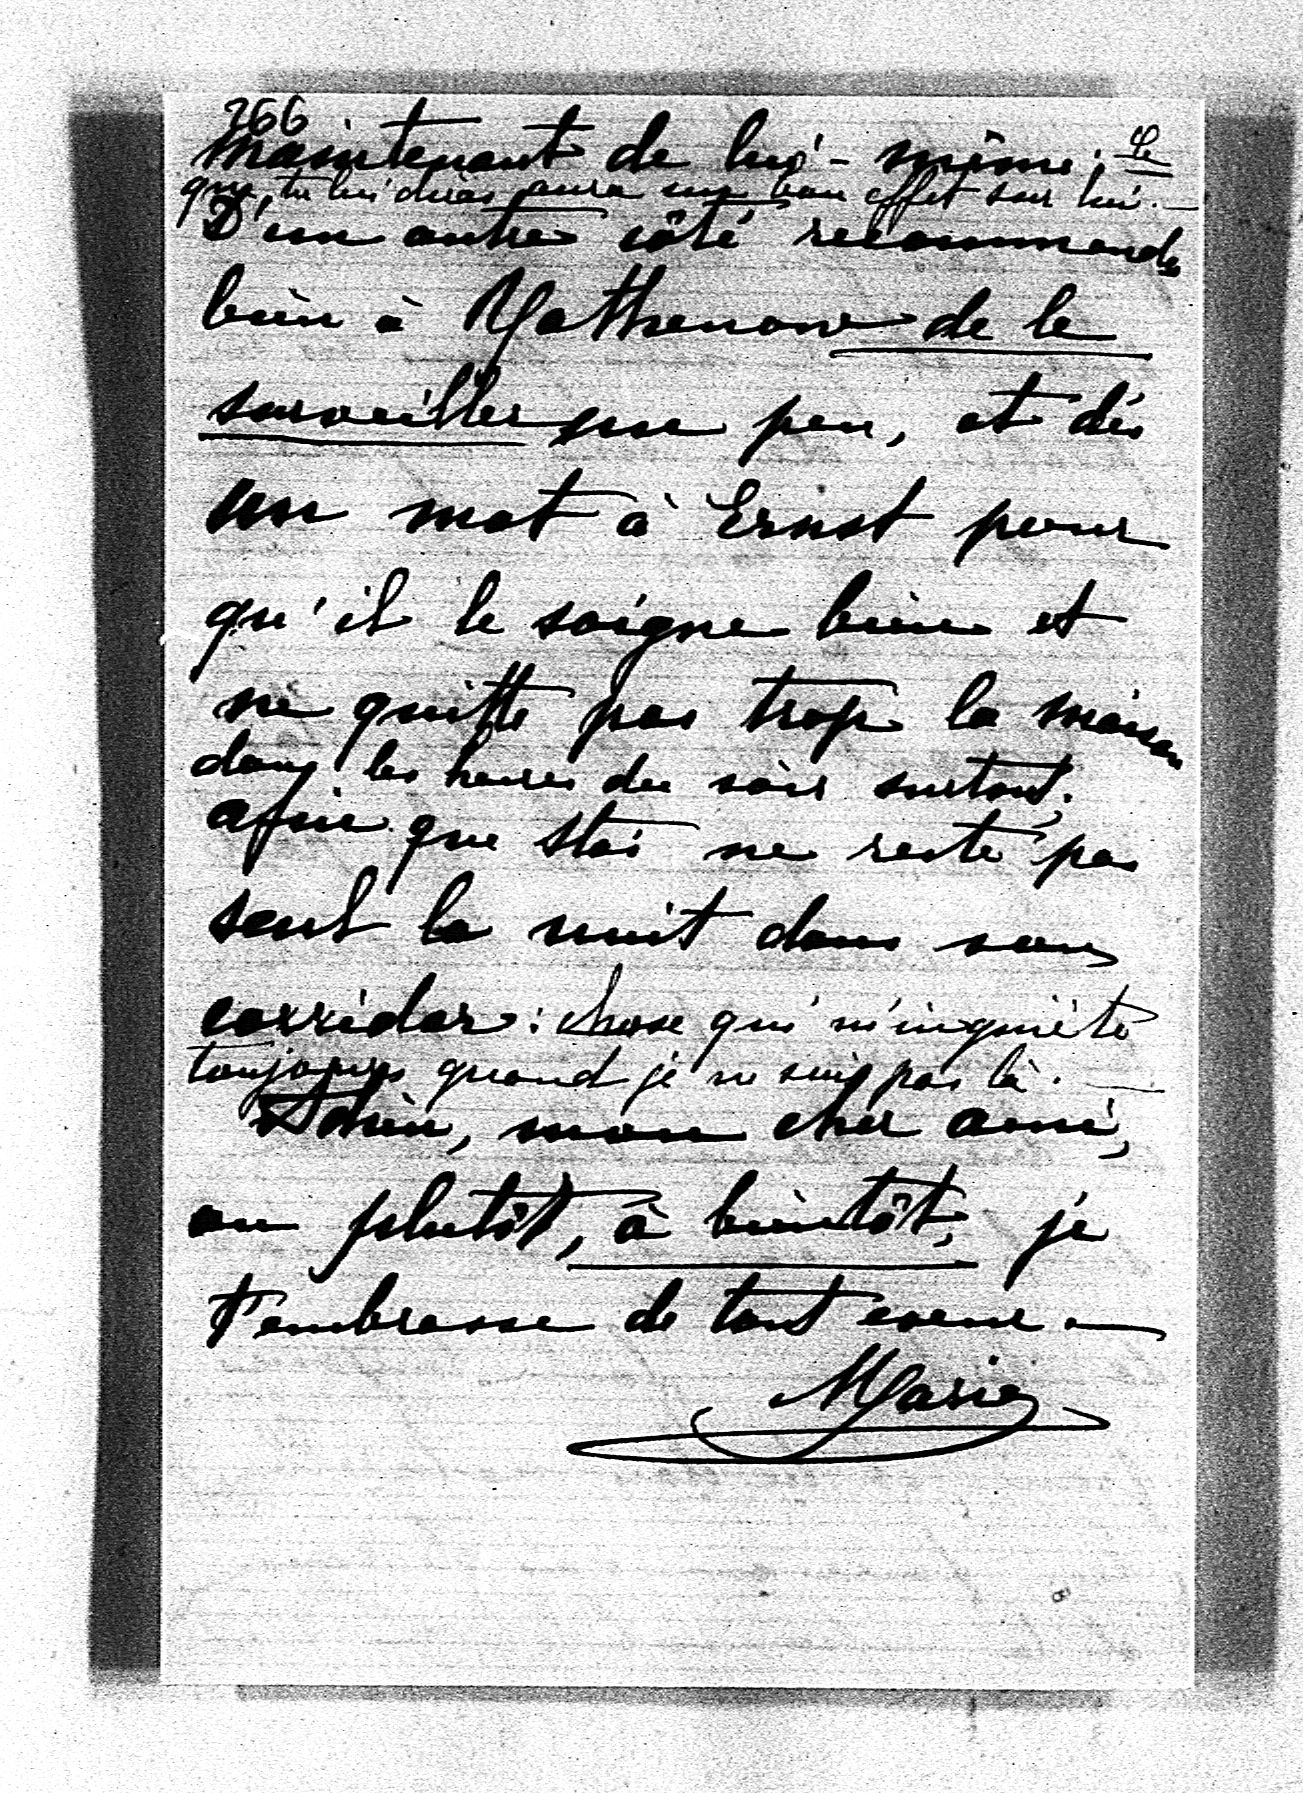 266
maintenant de lui-même. Ce
que tu lui diras aura un bon effet sur lui. —
D'un autre côté recommande
bien à Mathenon de le
surveiller un peu, et dis
un mot à Ernst pour
qu'il le soigne bien et
ne quitte pas trop la maison
dans les heures du soir surtout,
afin que Stas ne reste pas
seul la nuit dans son
corridor : chose qui m'inquiète
toujours quand je ne suis pas là. —
Adieu, mon cher ami,
ou plutôt, à bientôt, je
t'embrasse de tout coeur. —
Marie